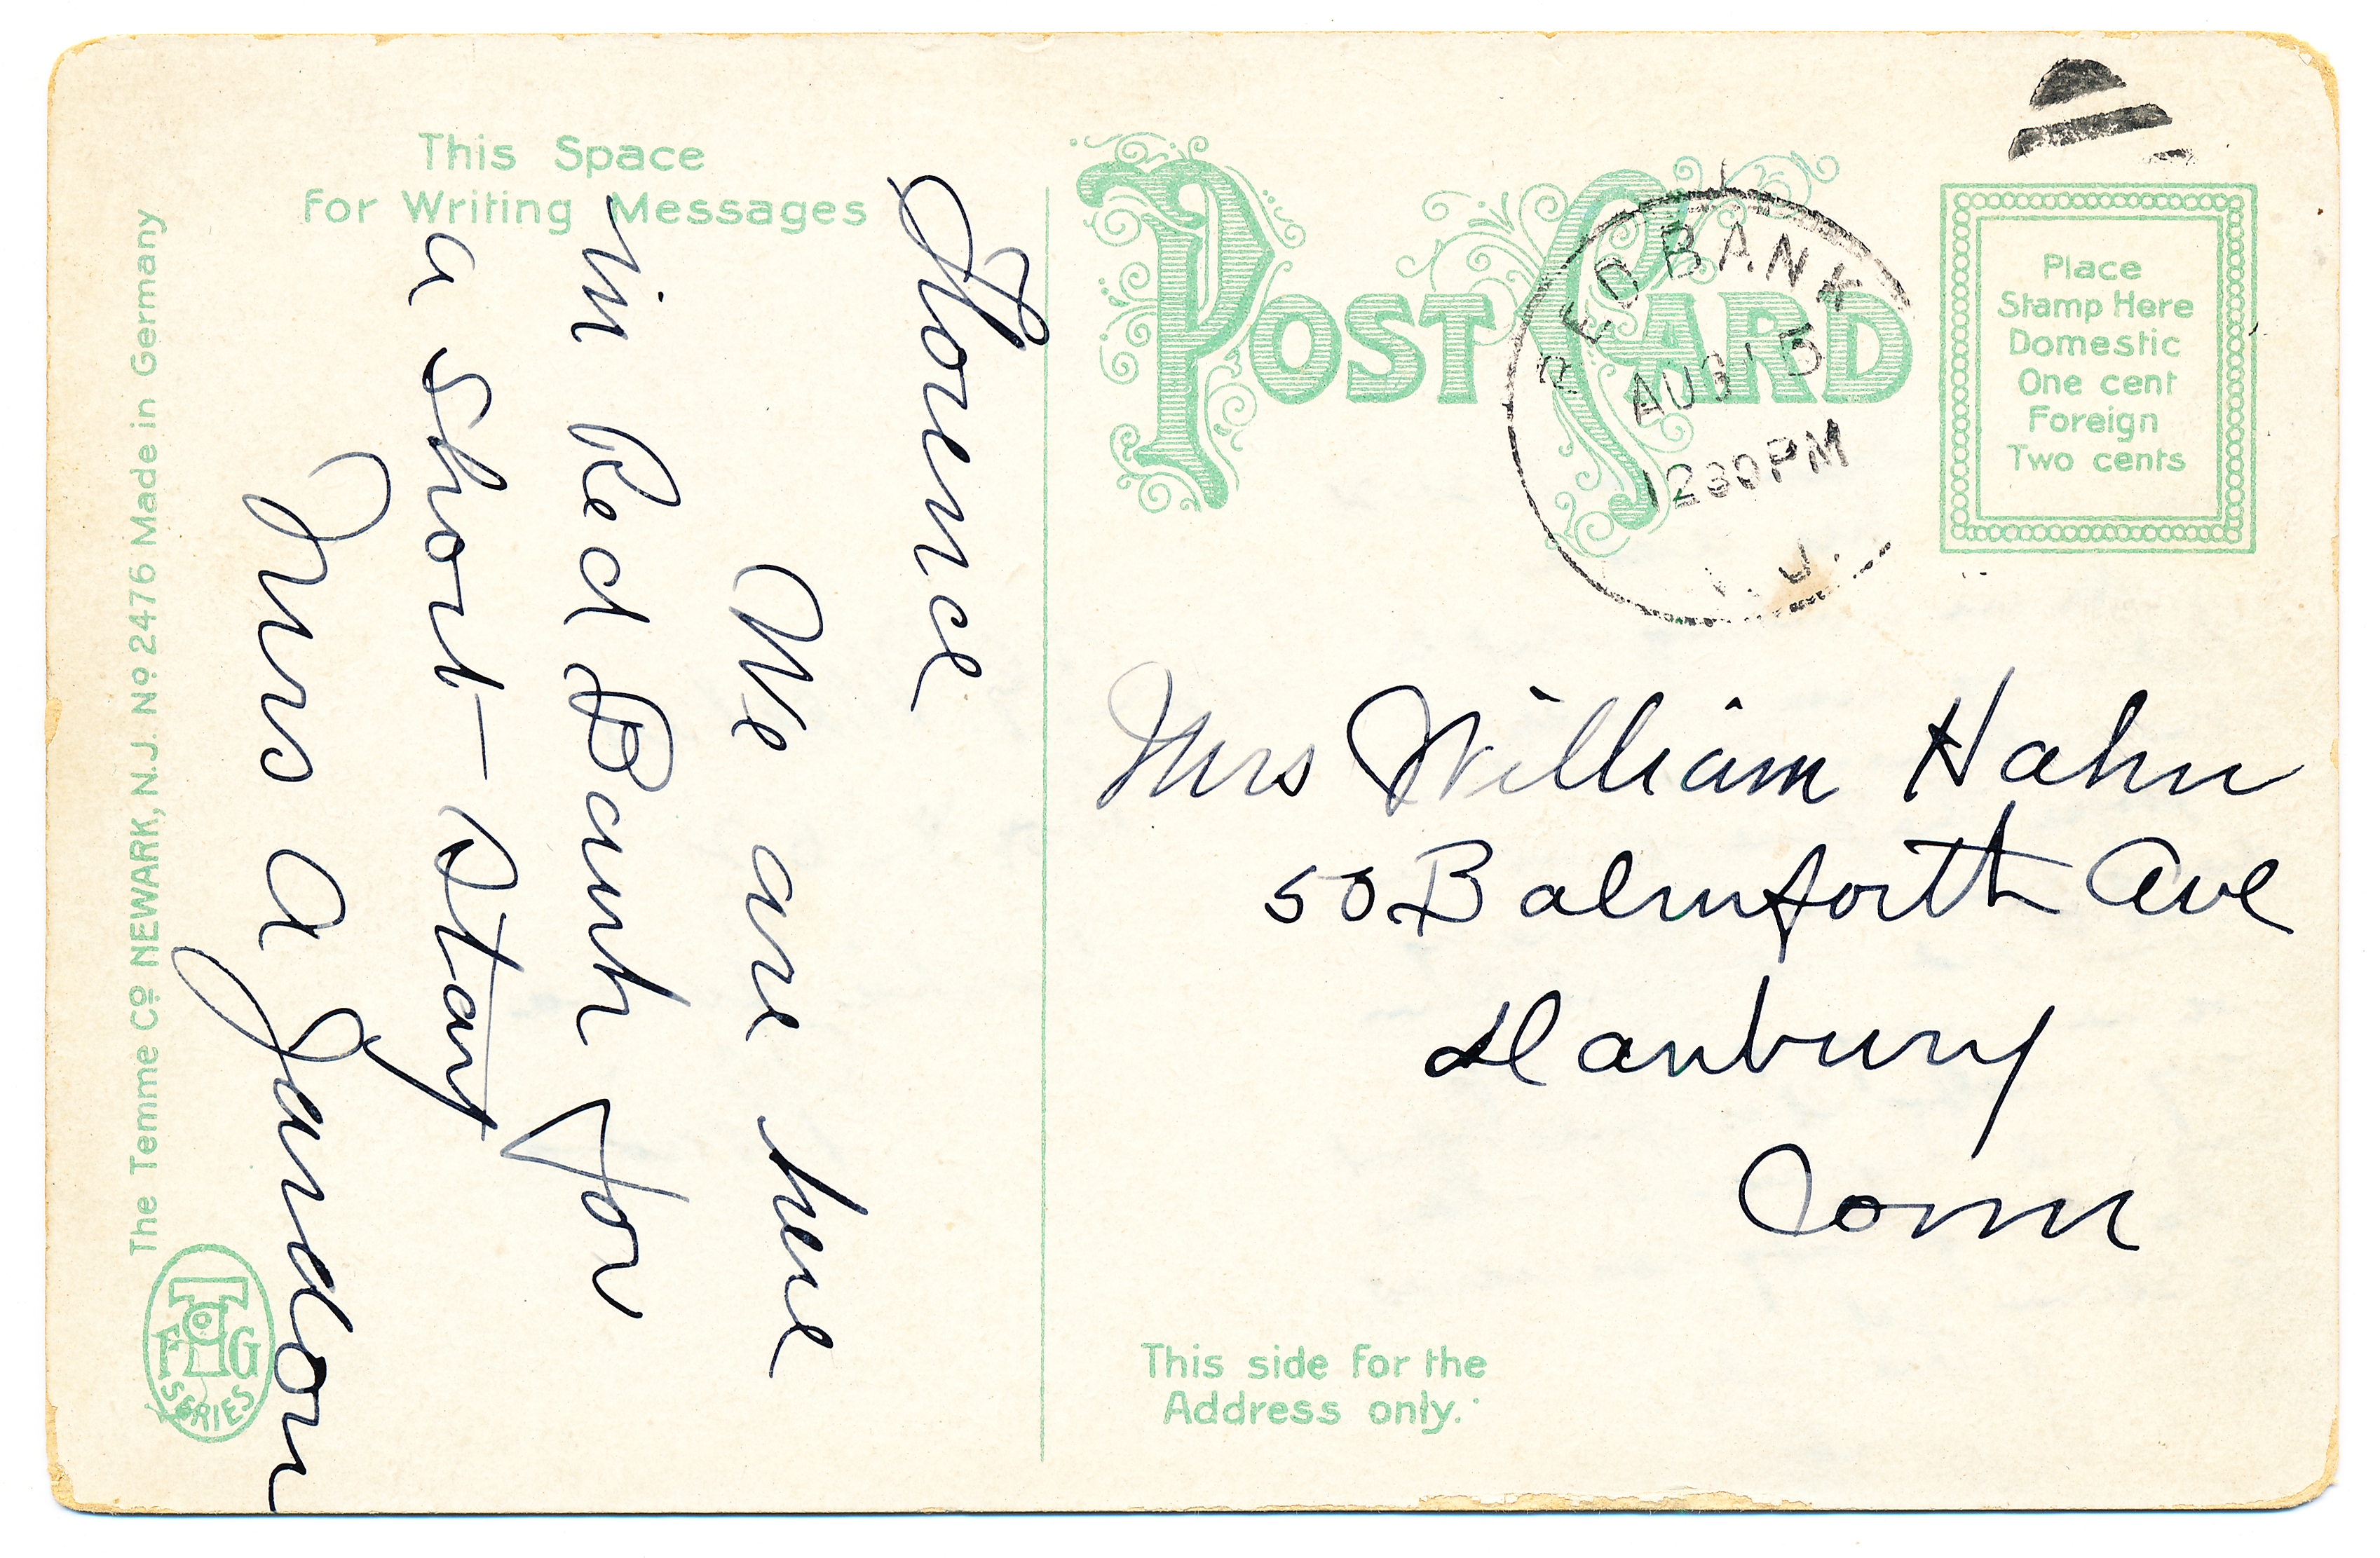 This Space
for Writing Messages
Florence
We are here
in Red Bank for
a short stay
Mrs A Jandon
The Temme Co NEWARK, N.J. No 2476 Made in Germany
SERIES
POST CARD
RED BANK
AUG 15
1230PM
J.
Place
Stamp Here
Domestic
One cent
Foreign
Two cents
Mrs William Hahn
50 Balmforth Ave
Danbury
Conn
This side for the
Address only.